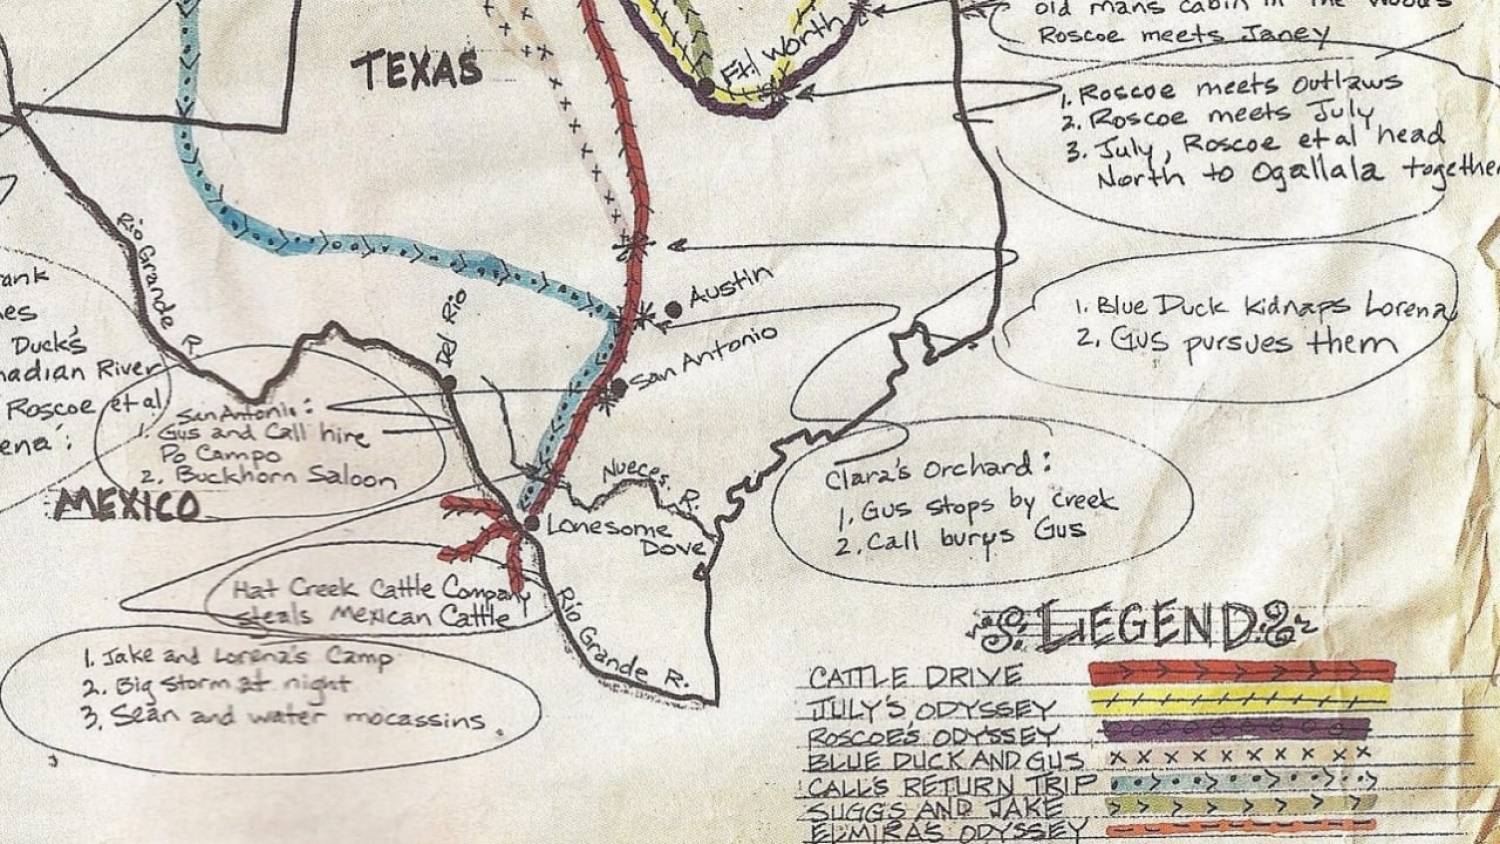 old mans cabin in the woods
Roscoe meets Janey
TEXAS
Ft. Worth
1. Roscoe meets outlaws
2. Roscoe meets July
3. July, Roscoe et al head
North to Ogallala together
Rio Grande R.
Del Rio
Austin
San Antonio
1. Blue Duck kidnaps Lorena
2. Gus pursues them
Duck's
nadian River
Roscoe et al
San Antonio:
1. Gus and Call hire
Po Campo
2. Buckhorn Saloon
MEXICO
Nueces R.
Lonesome
Dove
Clara's Orchard:
1. Gus stops by creek
2. Call burys Gus
Hat Creek Cattle Company
steals Mexican Cattle
Rio Grande R.
1. Jake and Lorena's Camp
2. Big Storm at night
3. Sean and water mocassins
LEGEND
CATTLE DRIVE
JULY'S ODYSSEY
ROSCOE'S ODYSSEY
BLUE DUCK AND GUS
CALL'S RETURN TRIP
SUGGS AND JAKE
ELMIRA'S ODYSSEY